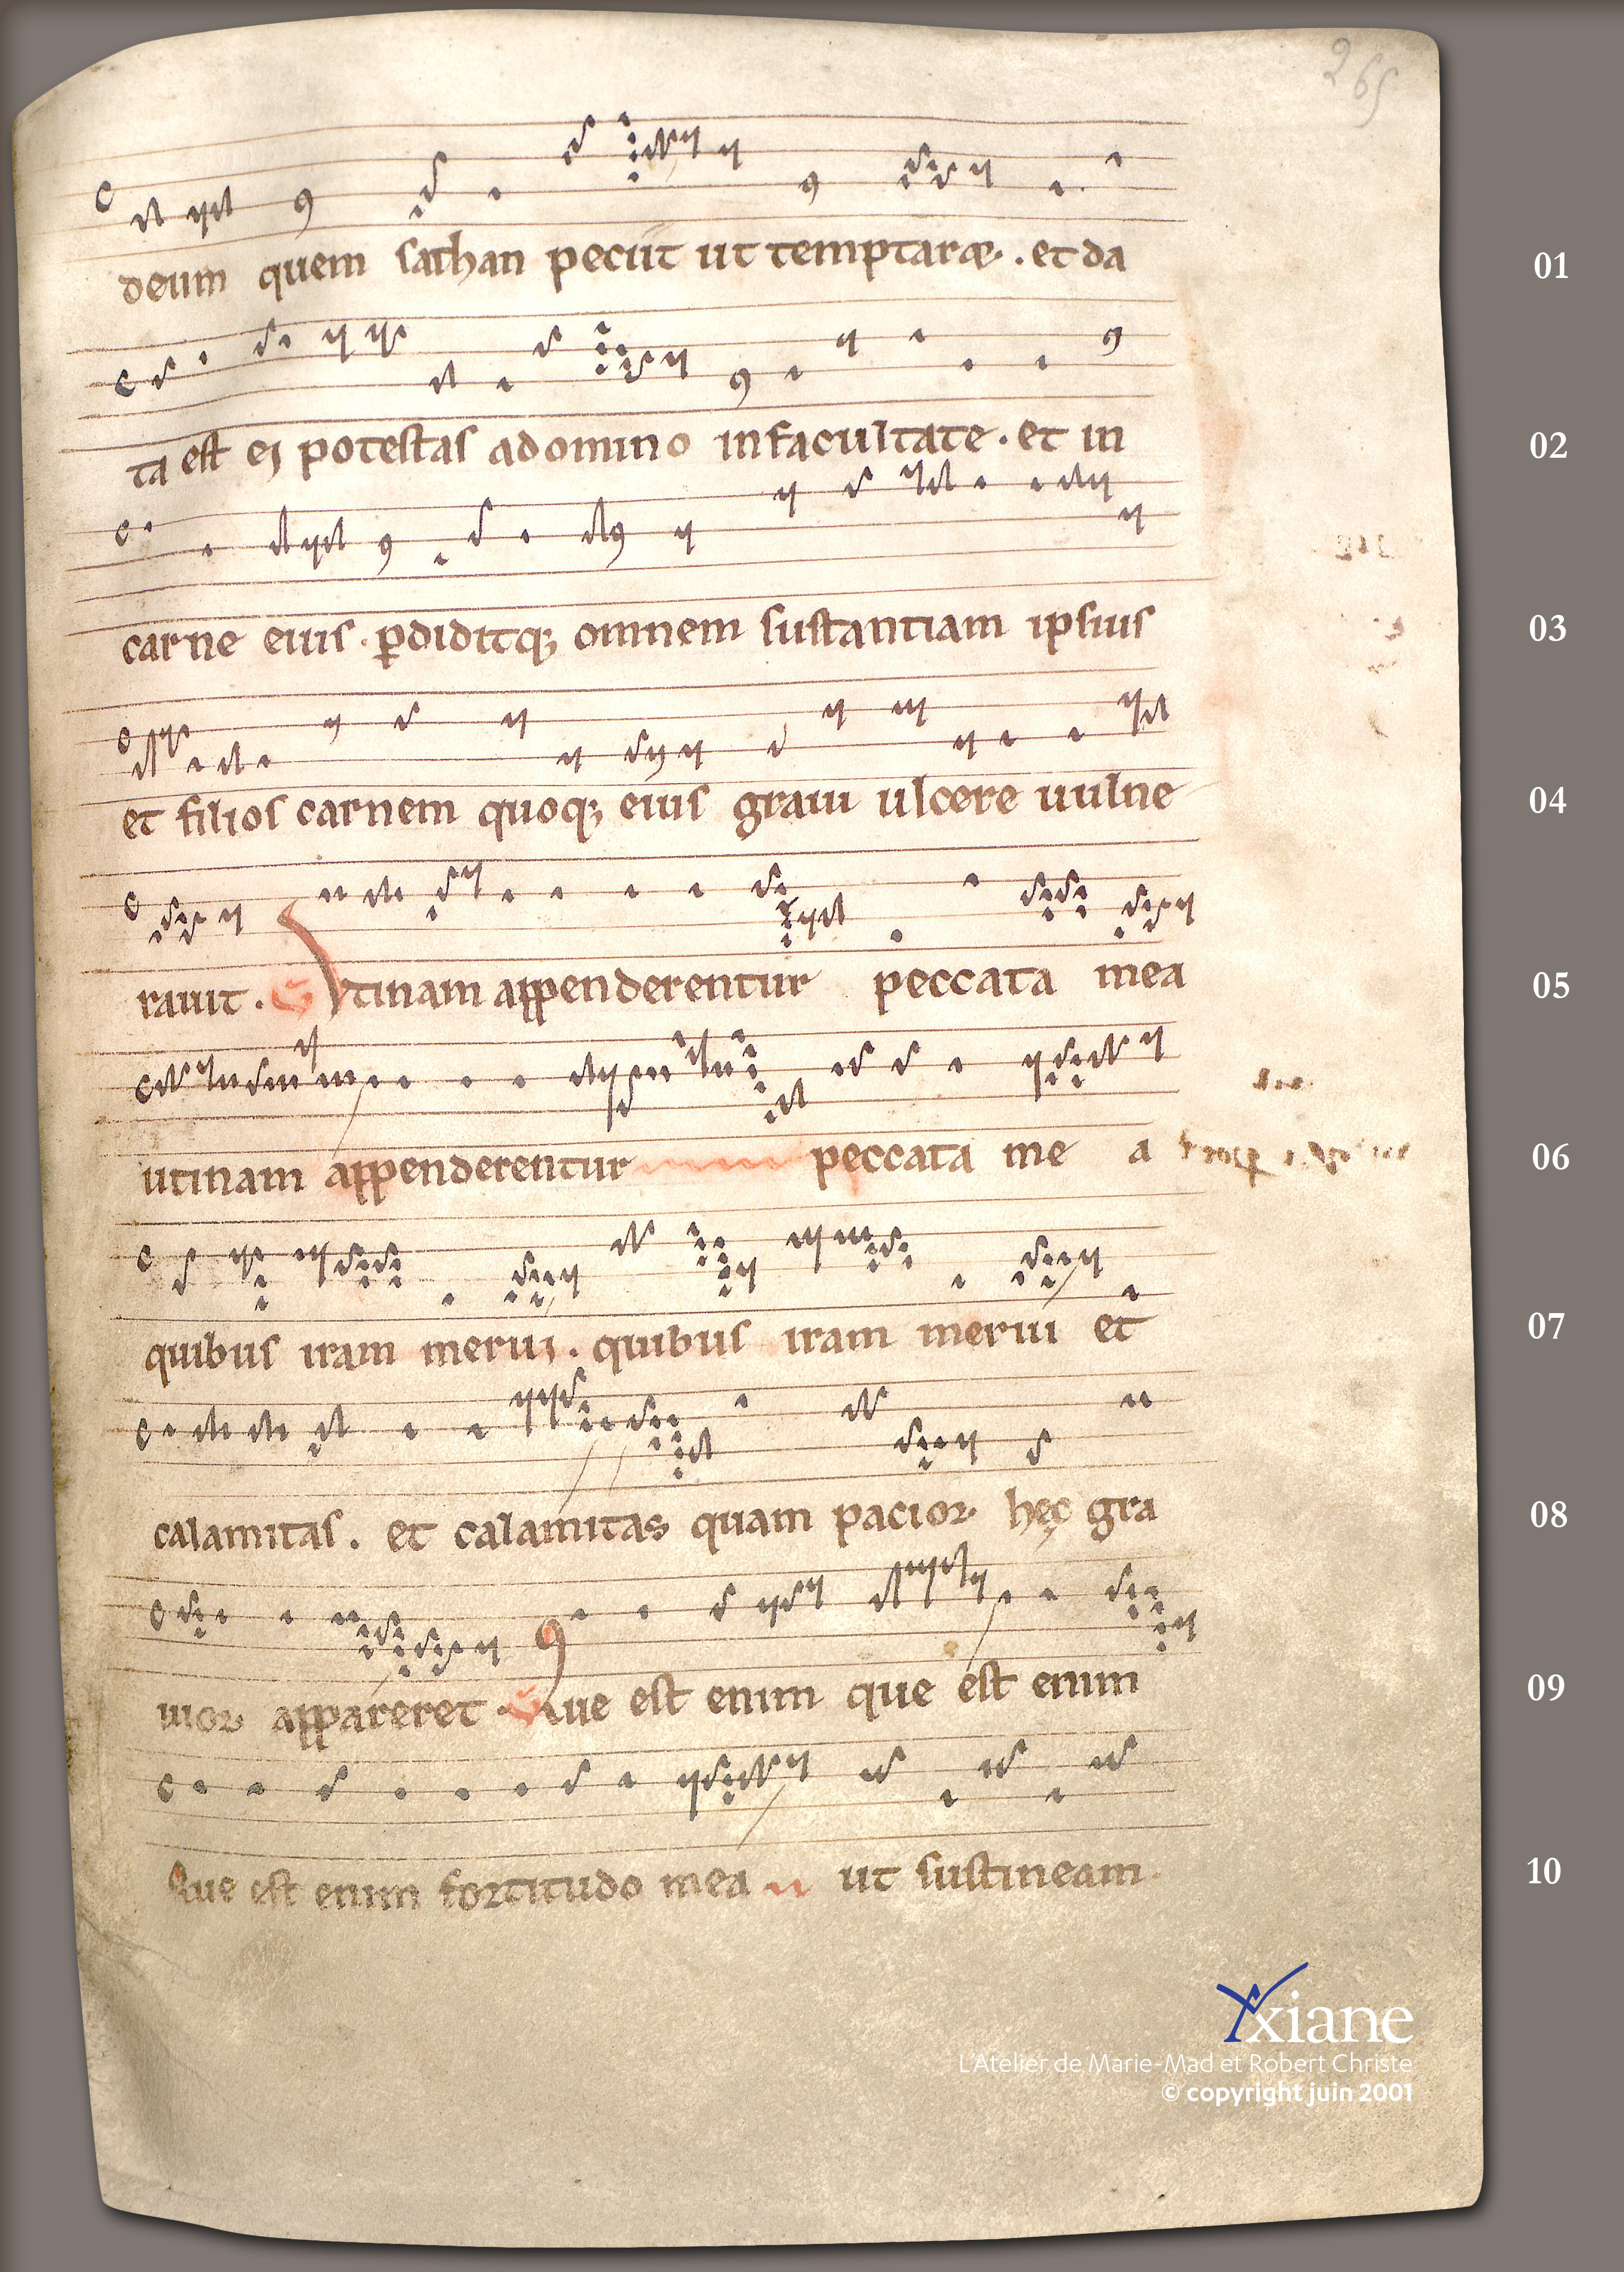 265
deum quem sathan peciit ut temptaræ. et da
01
ta est ei potestas adomino infacultate. et in
02
carne eius. ꝑdiditq; omnem sustantiam ipsius
03
et filios carnem quoq; eius graui ulcere uulne
04
rauit. Vtinam appenderentur peccata mea
05
utinam appenderentur peccata me a
06
quibus iram merui. quibus iram merui et
07
calamitas. et calamitas quam pacior hęc gra
08
uior appareret. Que est enim que est enim
09
Que est enim fortitudo mea ut sustineam.
10
Yxiane
L'Atelier de Marie-Mad et Robert Christe
© copyright juin 2001